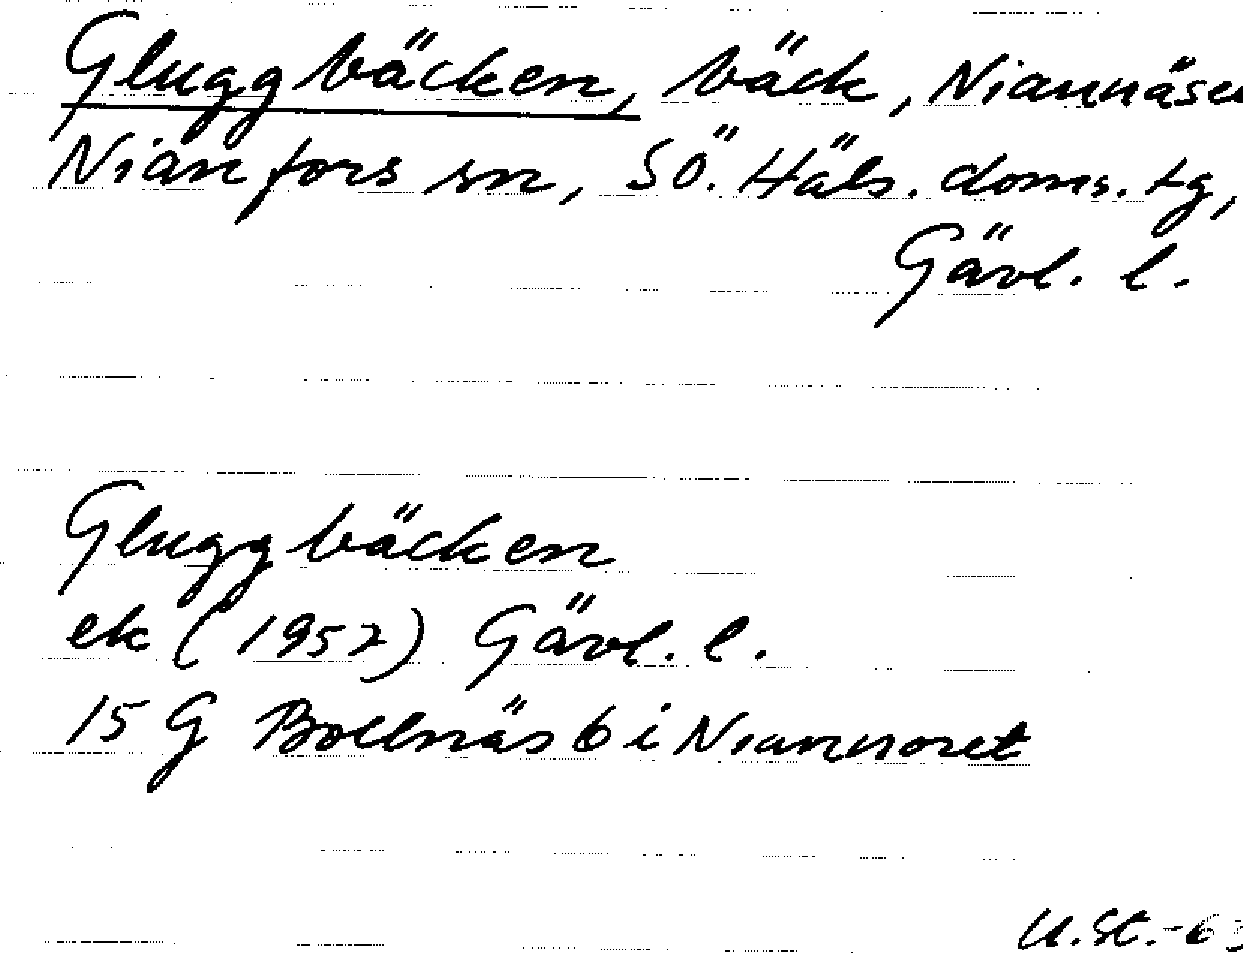 Gluggbäcken, bäck, Niannäsen
Nianfors sn, SÖ. Häls. doms. tg,
Gävl. l.
Gluggbäcken
ek (1952) Gävl. l.
15 G Bollnäs 6 i Niannoret
U.St.-63